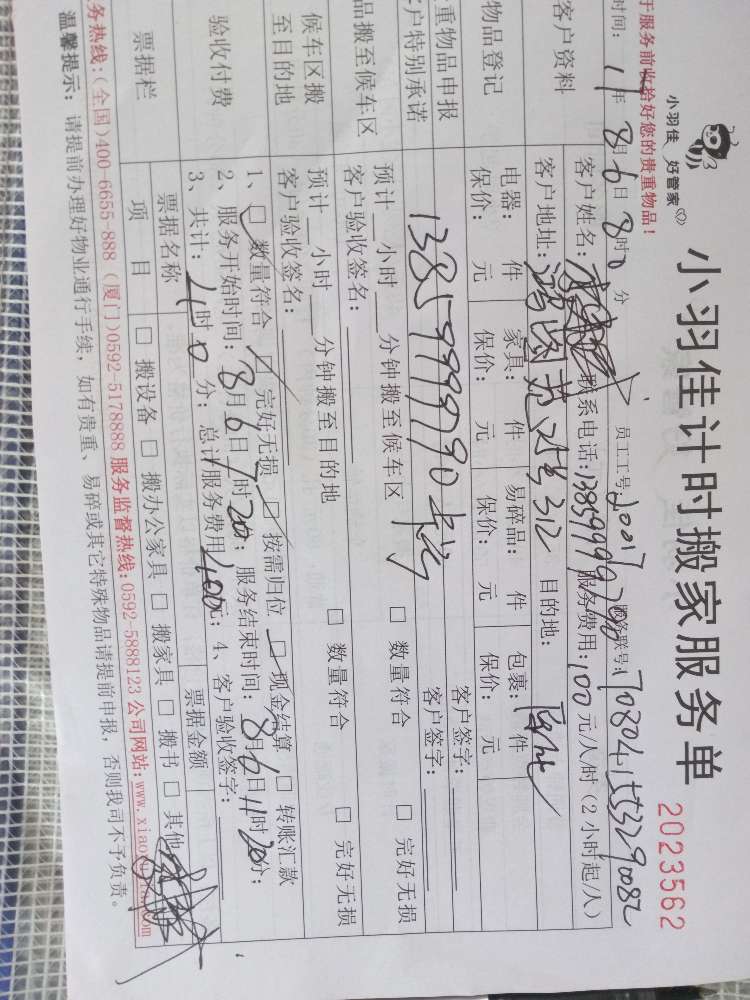 小羽佳 好管家
小羽佳计时搬家服务单
2023562
于服务前收拾好您的贵重物品!
时间: 年8月6日8时0分 员工工号:20017 服务联号:
客户资料
客户姓名: 联系电话:13859999790 服务费用:100元/人/时(2小时起/人)
客户地址: 25号312 目的地:
物品登记
电器: 件 家具: 件 易碎品: 件 包裹: 件
保价: 元 保价: 元 保价: 元 保价: 元
重物品申报
客户特别承诺
13859999790
客户签字:
客户签字:
品搬至候车区
预计 小时 分钟搬至候车区 □ 数量符合 □ 完好无损
客户验收签名:
候车区搬
至目的地
预计 小时 分钟搬至目的地 □ 数量符合 □ 完好无损
客户验收签名:
验收付费
1、□ 数量符合 □ 完好无损 □ 按需归位 □ 现金结算 □ 转账汇款
2、服务开始时间:8月6日7时20分;服务结束时间:8月6日11时20分;
3、共计:4时0分;总计服务费用400元;4、客户验收签字:
票据栏
票据名称 票据金额
项 目 □ 搬设备 □ 搬办公家具 □ 搬家具 □ 搬书 □ 其他
务热线:(全国)400-6655-888 (厦门)0592-5178888 服务监督热线:0592-5888123 公司网站:
温馨提示: 请提前办理好物业通行手续,如有贵重、易碎或其它特殊物品请提前申报,否则我司不予负责。